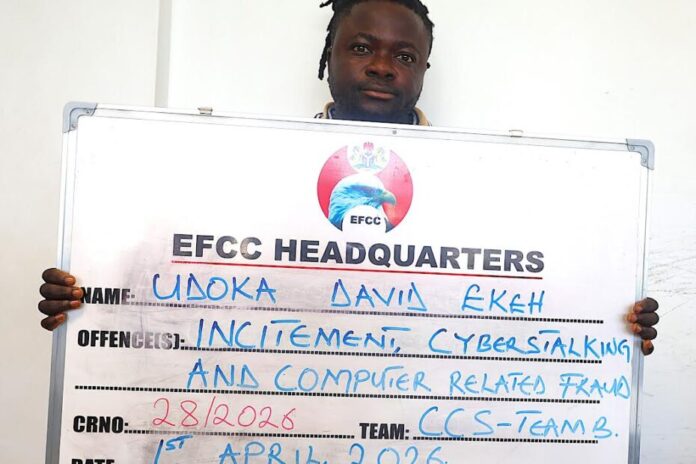 EFCC
EFCC HEADQUARTERS
NAME: UDOKA DAVID EKEH
OFFENCE(S): INCITEMENT, CYBERSTALKING
AND COMPUTER RELATED FRAUD
CRNO: 28/2026 TEAM: CCS-TEAM B.
DATE 1ST APRIL, 2026